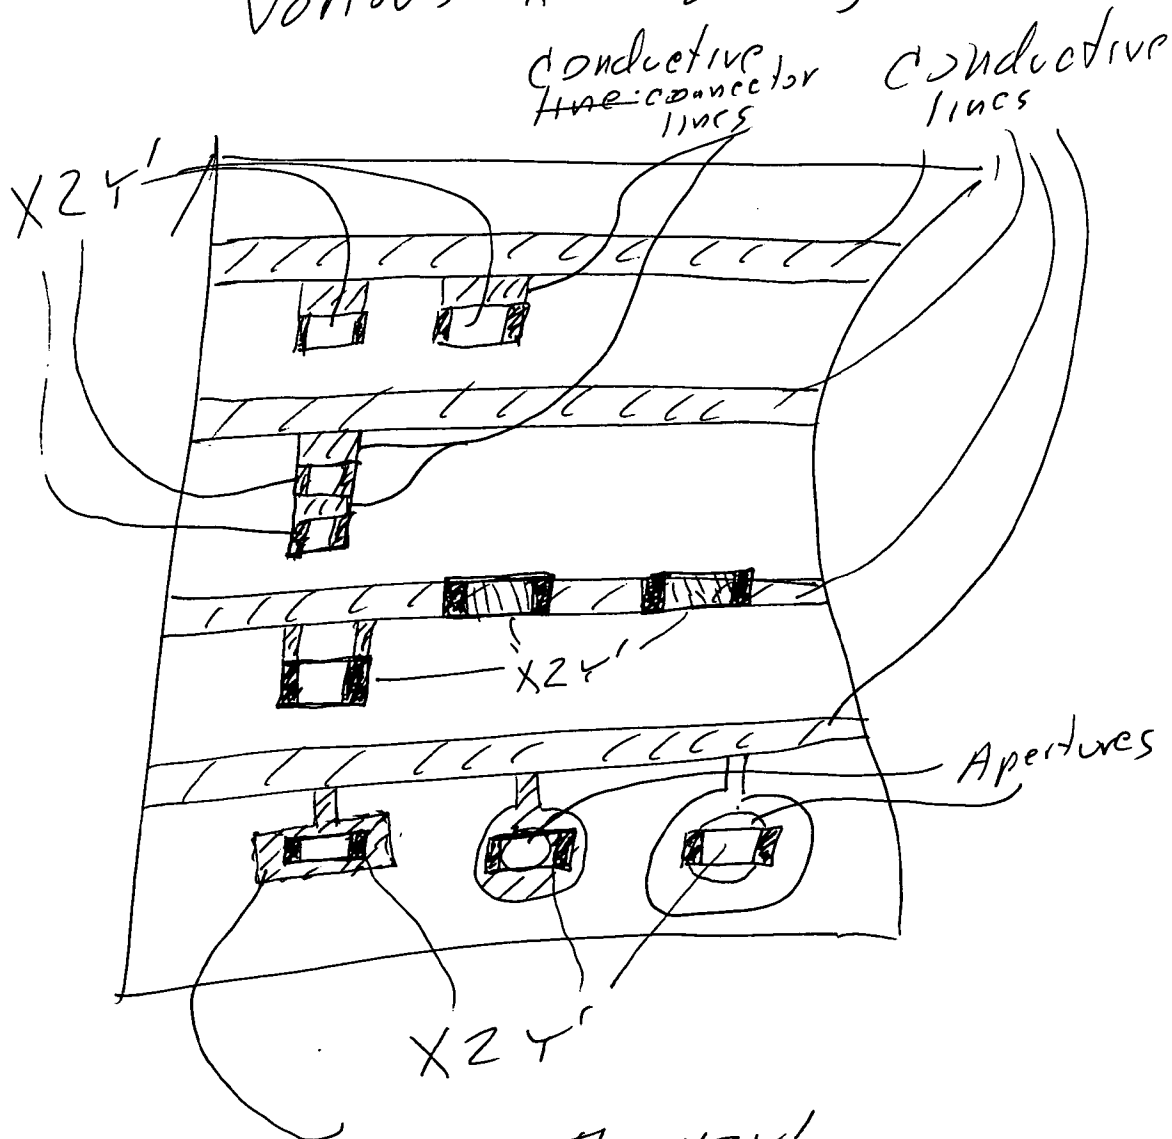 Various
conductive
line connector
lines
conductive
lines
X2Y'
X2Y'
Apertures
X2Y'